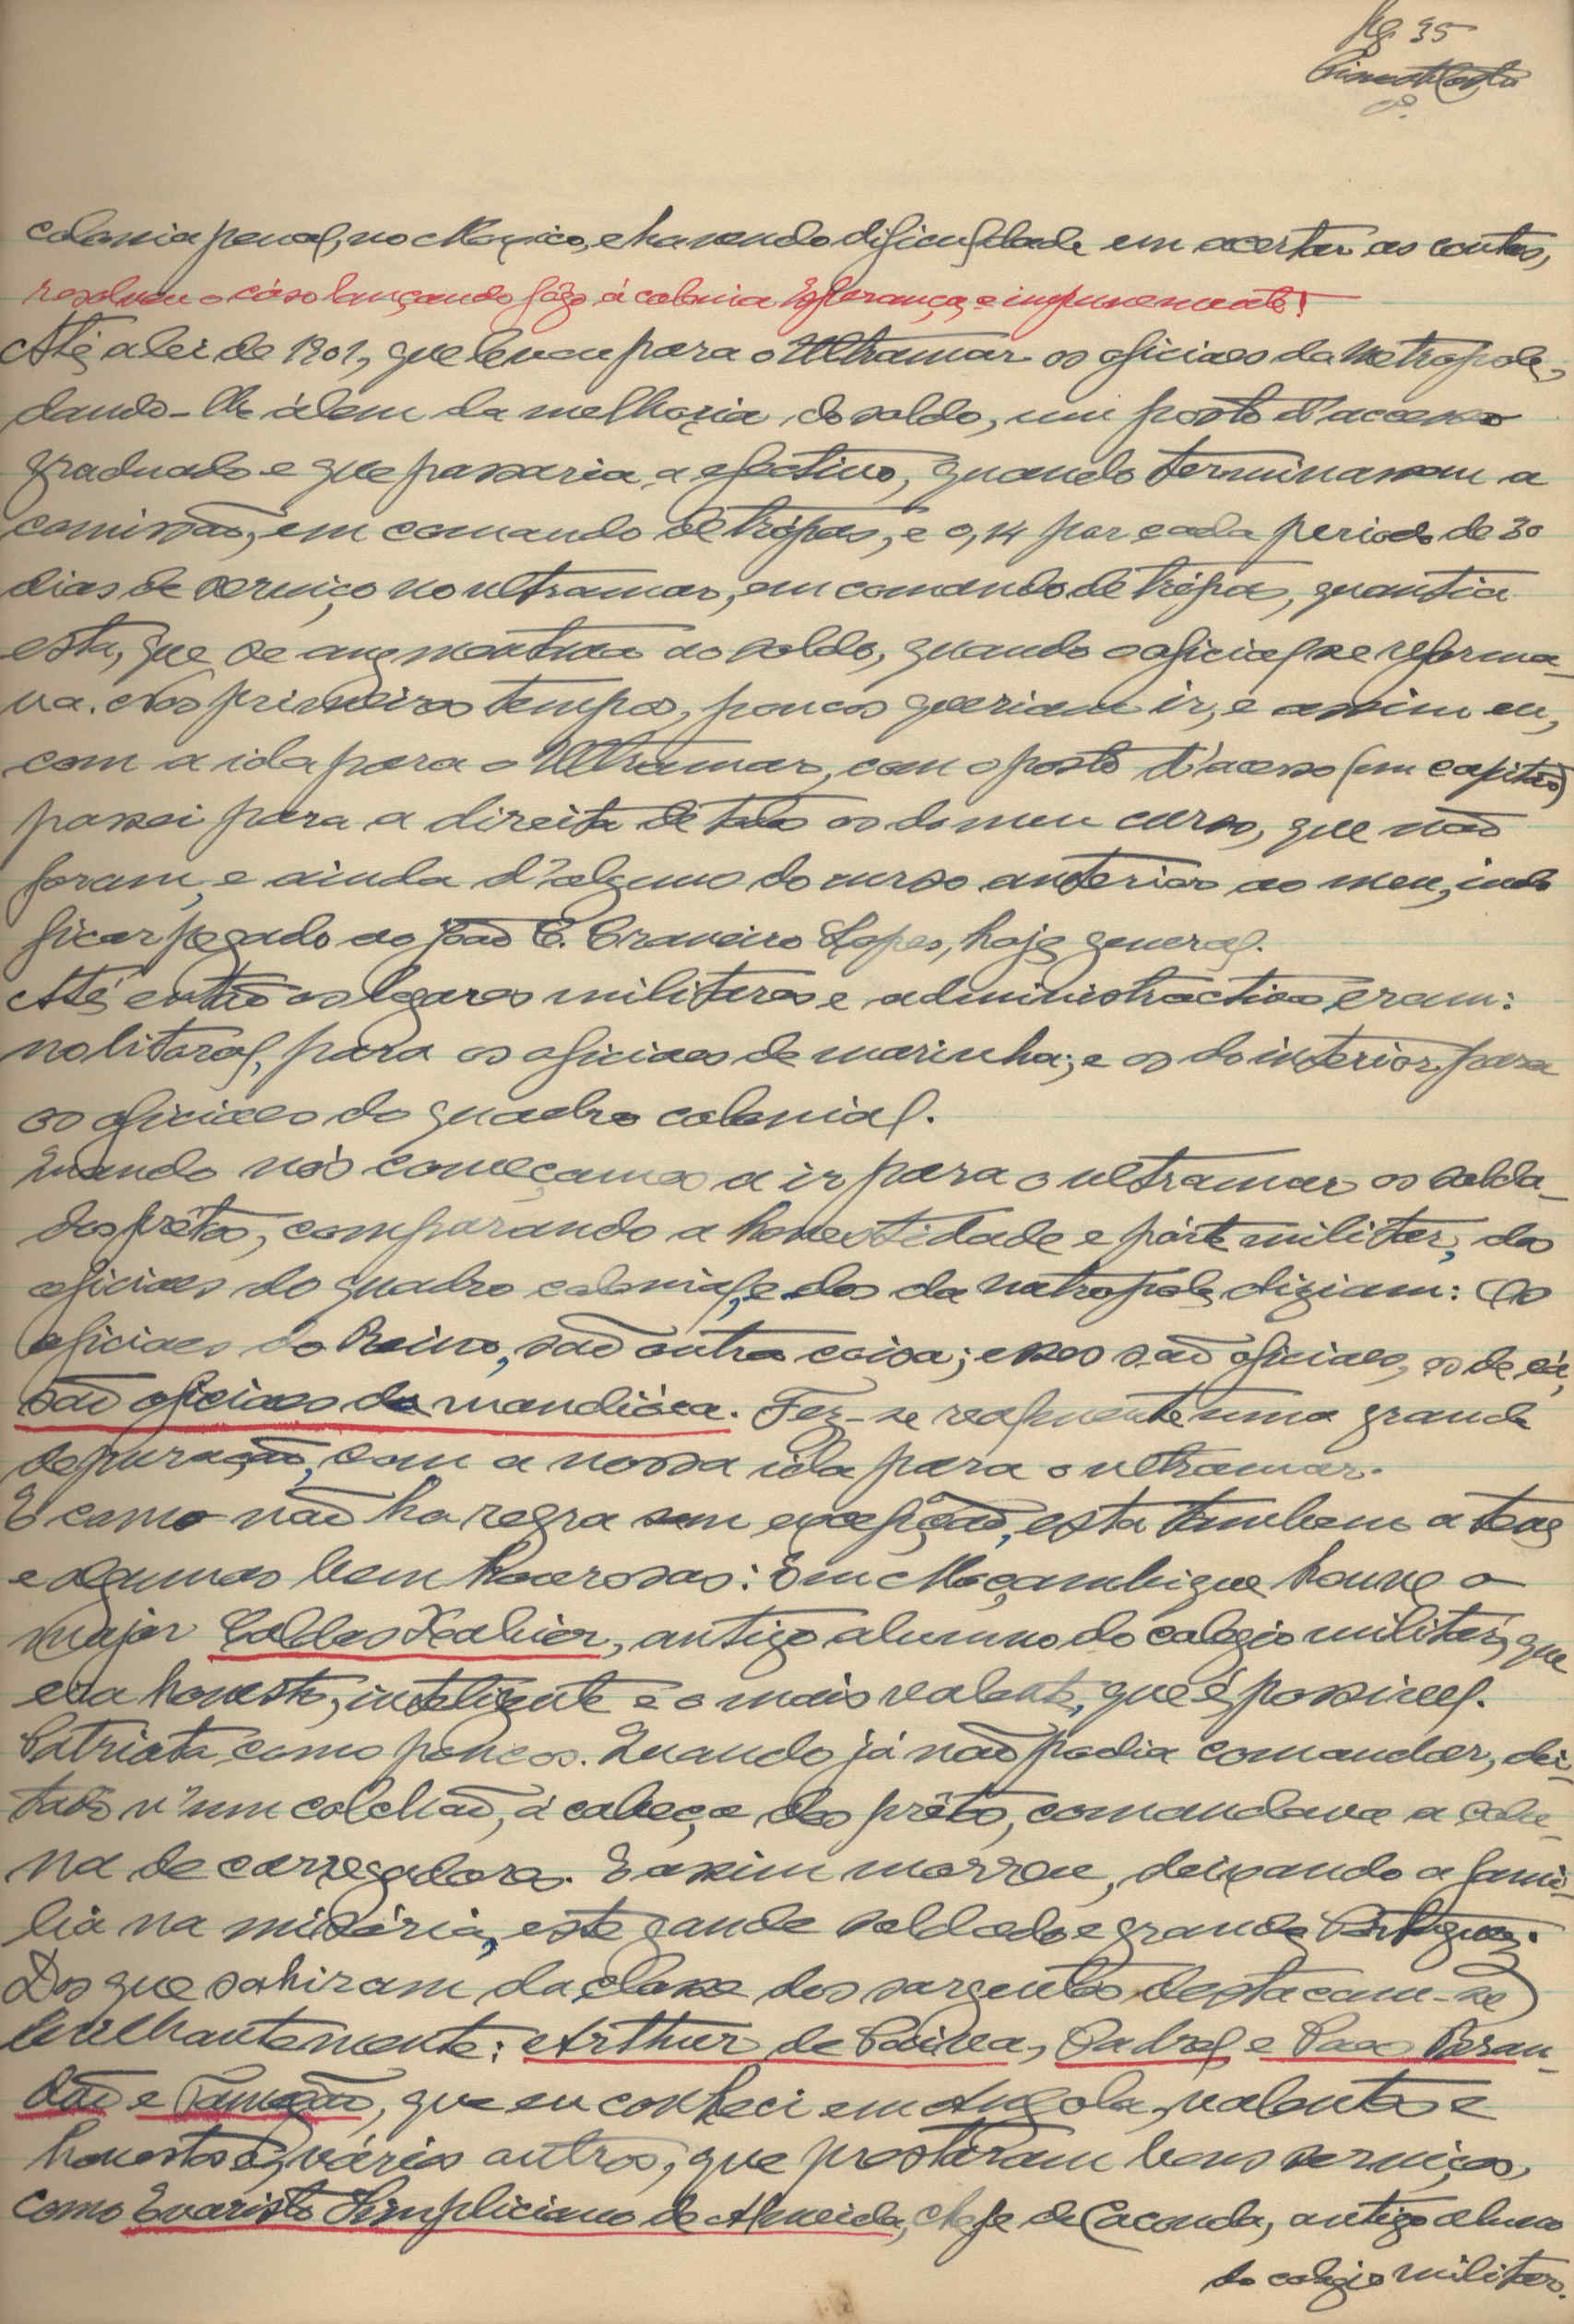 Pg. 35
Pimenta Costa
colonia penal, no Moxico, e havendo dificuldade em acertar as contas,
resolveu o cáso lançando fôgo á colonia Esperança, e impunemente!
Até a lei de 1901, que levou para o Ultramar os oficiaes da Metropole,
dando-lhe àlem da melhoria do soldo, um posto d'accesso
graduado e que passaria, a efectivo, quando terminassem a
comissão, em comando de trópas, e 0,14 por cada periodo de 30
dias de serviço no ultramar, em comando de trópas, quantia
esta, que se augmentava ao soldo, quando o oficial se reforma-
va. Nos primeiros tempos, poucos queriam ir, e assim eu,
com a ida para o Ultramar, com o posto d'acesso (em capitão)
passei para a direita de todos os do meu curso, que não
foram, e ainda d'alguns do curso anterior ao meu, indo
ficar pegado ao João C. Craveiro Lopes, hoje general.
Até então os logares militares e administractivos, eram:
no litoral, para os oficiaes de marinha; e os do interior, para
os oficiaes do quadro colonial.
Quando nós começamos a ir para o ultramar os solda-
dos prêtos, comparando a honestidade e pórte militar, dos
oficiaes do quadro colonial, e dos da metropole, diziam: Os
oficiaes do Reino, são outra coisa; esses são oficiaes, os de cá,
são oficiaes de mandióca. Fez-se realmente uma grande
depuração, com a nossa ida para o ultramar.
E como não ha regra sem excepção, esta tambem a teve
e algumas bem honrosas: Em Moçambique houve o
major Caldas Xavier, antigo alumno do colegio militar, que
era honesto, inteligente e o mais valente, que é possivel.
Patriota como poucos. Quando já não podia comandar, dei-
tado n'um colchão, á cabeça dos prêtos, comandava a colu-
na de carregadores. E assim morreu, deixando a fami-
lia na miséria, este gande soldado e grande Portuguez.
Dos que sahiram da classe dos sargentos destacam-se
brilhantemente: Arthur de Paiva, Padrel e Paes Bran-
dão e Tamegão, que eu conheci em Angola, valentes e
honestos e, vários outros, que prestaram bons serviços,
como Evaristo Simpliciano de Almeida, chefe de Caconda, antigo aluno
do colegio militar.